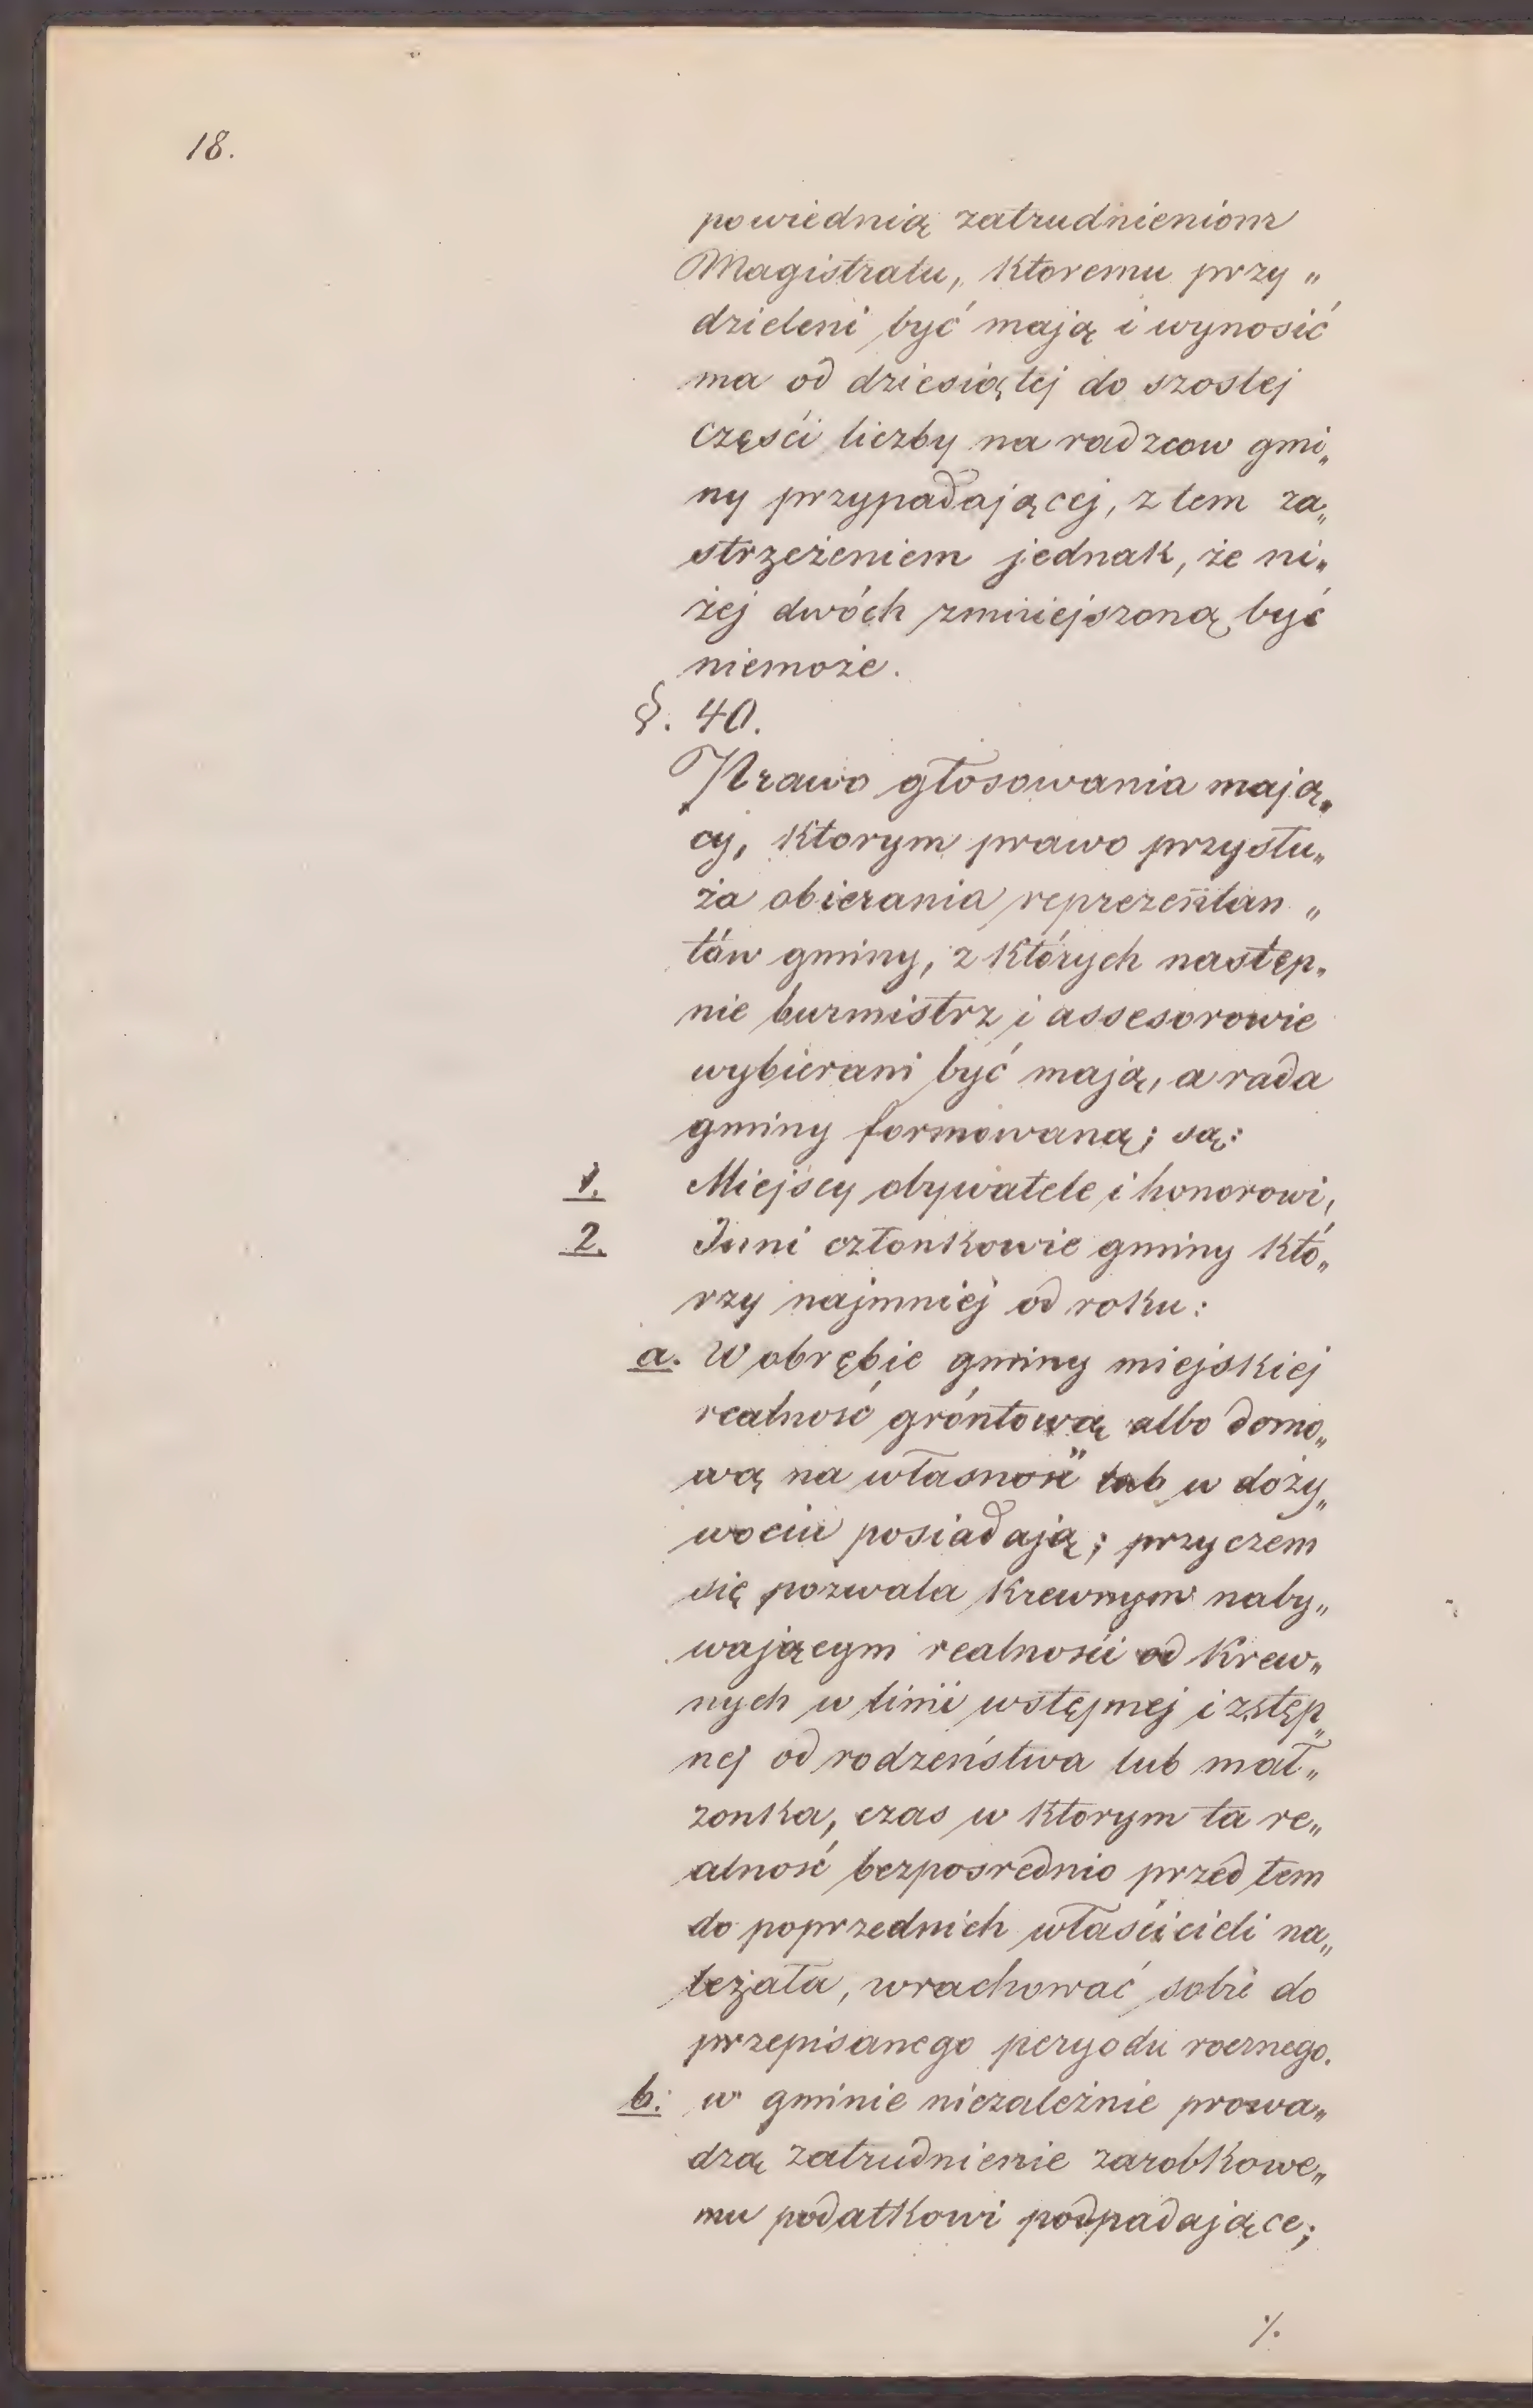 18.
powiednią zatrudnieniom
Magistratu, ktoremu przy„
dzieleni być mają i wynosić
ma od dziesiątej do szostej
części liczby na radzcow gmi„
ny przypadającej, z tem za„
strzeżeniem jednak, że ni„
żej dwóch zmniejszoną być
niemoże.
§. 40.
Prawo głosowania mają„
cy, ktorym prawo przysłu„
ża obierania reprezentan„
tów gminy, z których następ„
nie burmistrz i assesorowie
wybierani być mają, a rada
gminy formowaną; są:
1. Miejscy obywatele i honorowi,
2. Inni członkowie gminy któ„
rzy najmniej od roku:
a. W obrębie gminy miejskiej
realność gróntową albo domo„
wą na własność lub w doży„
wociu posiadają; przyczem
się pozwala krewnym naby„
wającym realności od krew„
nych w linii wstępnej i zstęp„
nej od rodzeństwa lub mał„
zonka, czas w ktorym ta re„
alność bezposrednio przed tem
do poprzednich właścicieli na„
leżała, wrachować sobie do
przepisanego peryodu rocznego.
b. w gminie niezależnie prowa„
dzą zatrudnienie zarobkowe„
mu podatkowi podpadające;
⁒